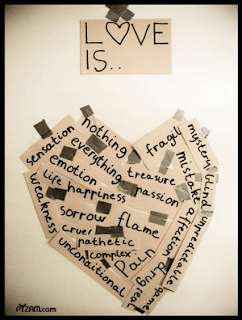 LOVE
IS..
nothing
sensation
everything
fragil
mystery
blind
emotion
treasure
mistake
unpredictable
life
happiness
passion
affection
weakness
sorrow
flame
cruel
pathetic
pain
drug
complex
unconditional
game
real
PYZAM.com